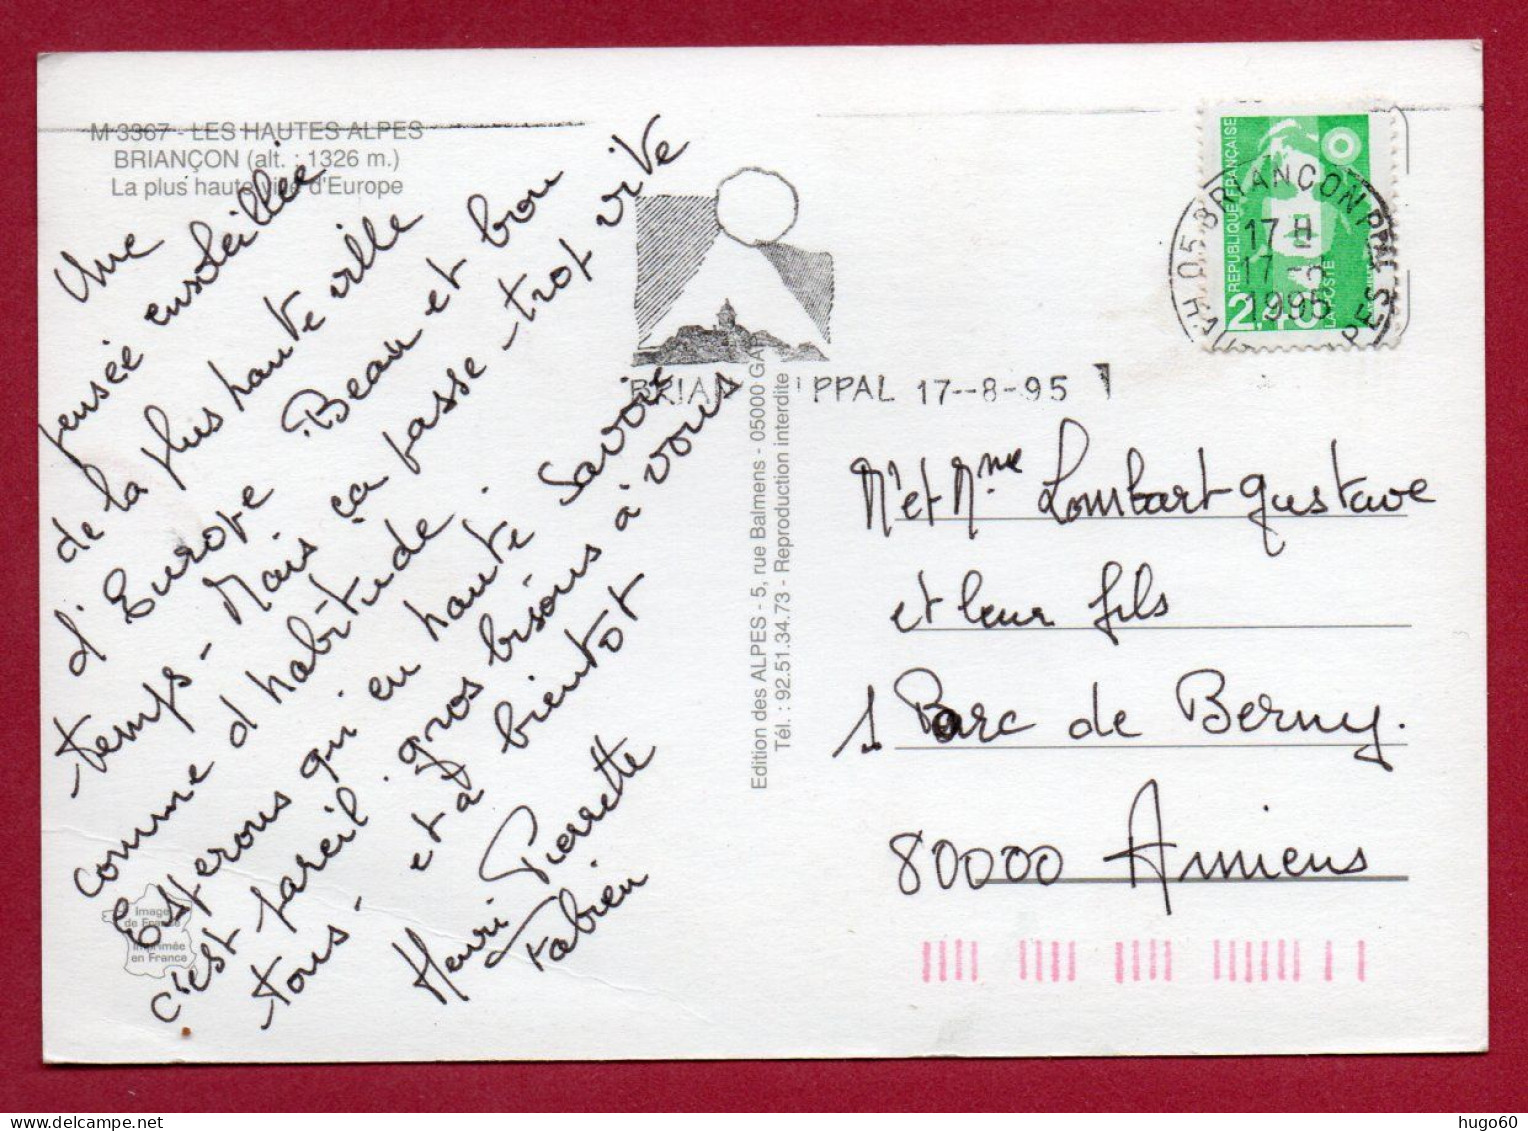 M 3367 - LES HAUTES ALPES
BRIANÇON (alt. : 1326 m.)
La plus haute ville d'Europe
Une
pensée ensoleillée
de la plus haute ville
d'Europe. Beau et bon
temps - Mais ça passe - trot vite
comme d'habitude.
Esperons qu'en haute Savoie
c'est pareil. gros bisous à vous
tous - et à bientot
Henri Pierrette
Fabien
Image
de France
Imprimée
en France
Edition des ALPES - 5, rue Balmens - 05000 GAP
Tél. : 92.51.34.73 - Reproduction interdite
BRIAN PPAL 17--8-95
REPUBLIQUE FRANÇAISE
LA POSTE
2,40
05 BRIANCON PPAL
17 H
17 - 8
1995
HAUTES ALPES
Mr et Mme Lombart Gustave
et leur fils
1 Parc de Berny.
80000 Amiens
hugo60